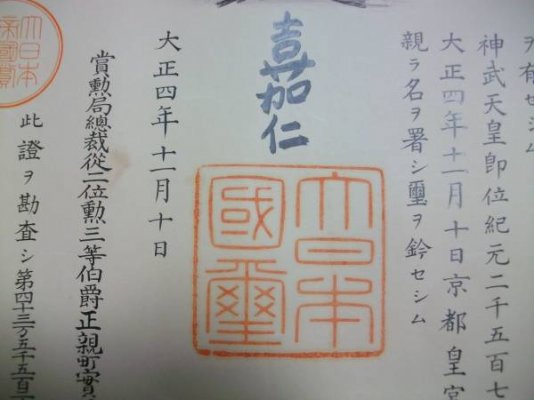 ヲ有セシム
神武天皇即位紀元二千五百七
大正四年十一月十日京都皇宮
親ラ名ヲ署シ璽ヲ鈐セシム
嘉仁
大日本
國璽
大正四年十一月十日
賞勲局總裁從二位勲三等伯爵正親町實
此證ヲ勘査シ第四十三万五千五百
大日本
帝國賞